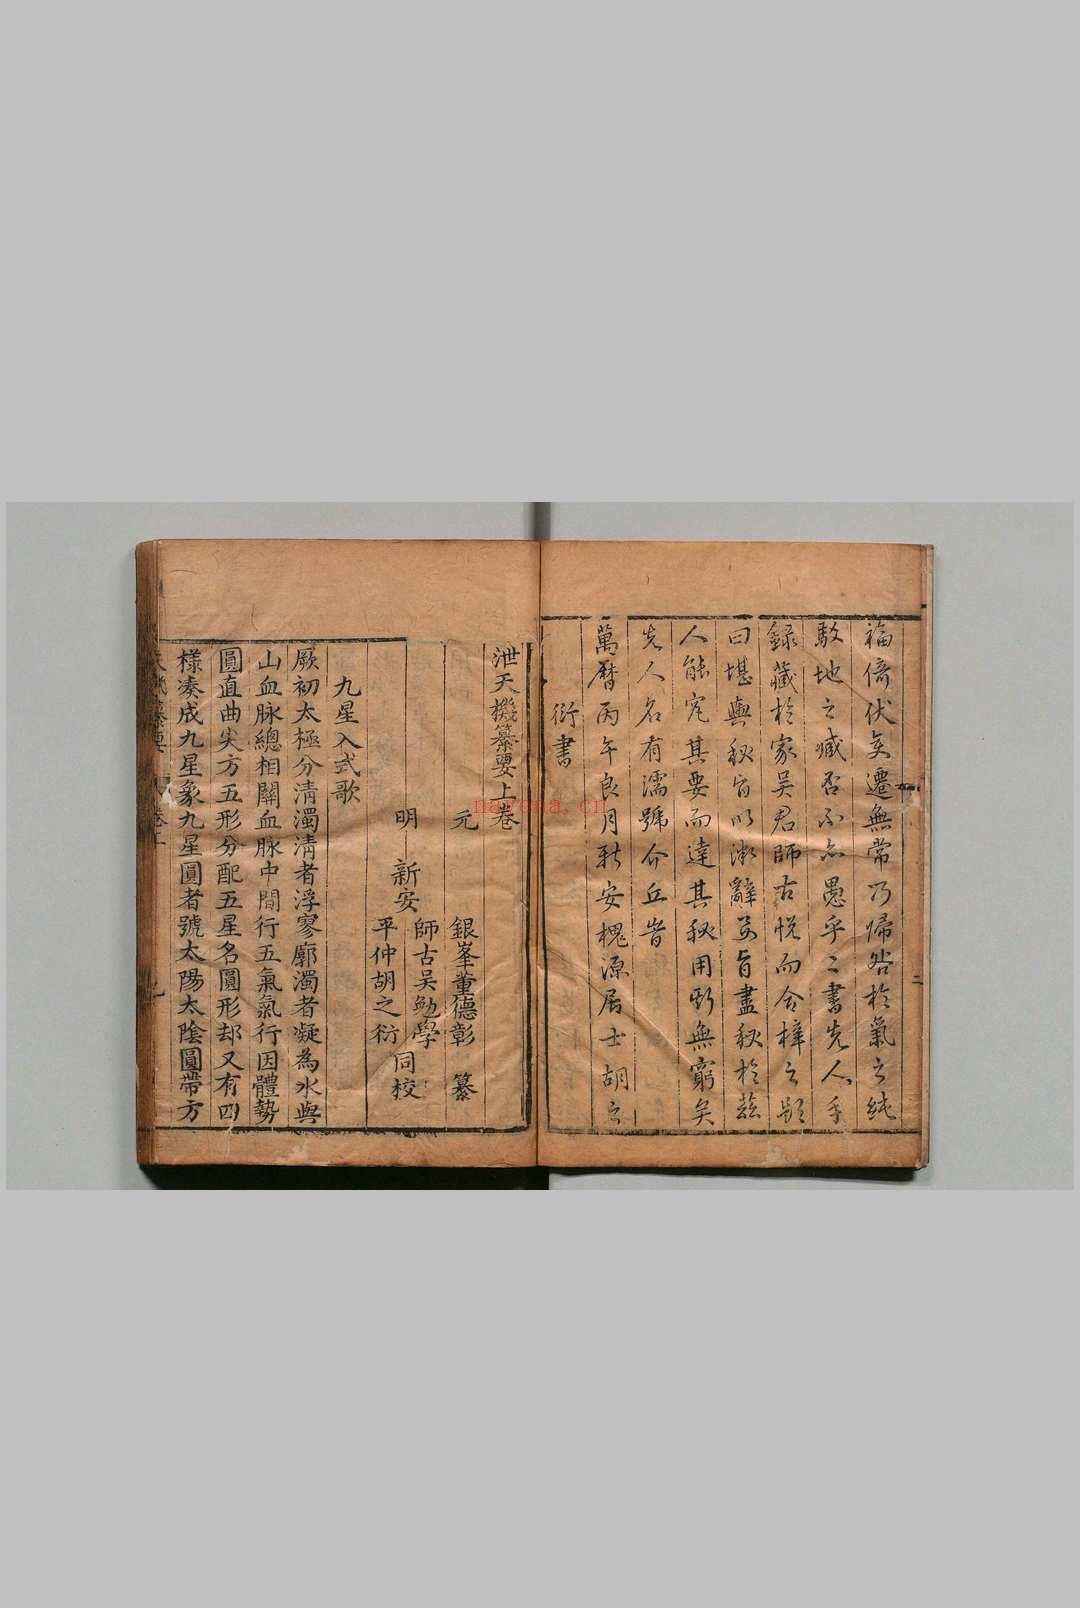 福倚伏矣遷無常乃歸咎於氣之純
駁地之臧否不亦愚乎二書先人手
錄藏於家吳君師古悅而合梓之題
曰堪輿秘旨以漸辭妄旨盡秘於茲
人能究其要而達其秘用斯無窮矣
先人名有濡號介丘旹
萬曆丙午良月新安槐源居士胡之
衍書
二
泄天機纂要上卷
元 銀峯董德彰 纂
明 新安 師古吳勉學 同校
平仲胡之衍
九星入式歌
厥初太極分清濁清者浮寥廓濁者凝為水與
山血脉總相關血脉中間行五氣氣行因體勢
圓直曲尖方五形分配五星名圓形却又有四
樣湊成九星象九星圓者號太陽太陰圓帶方
nayona.cn